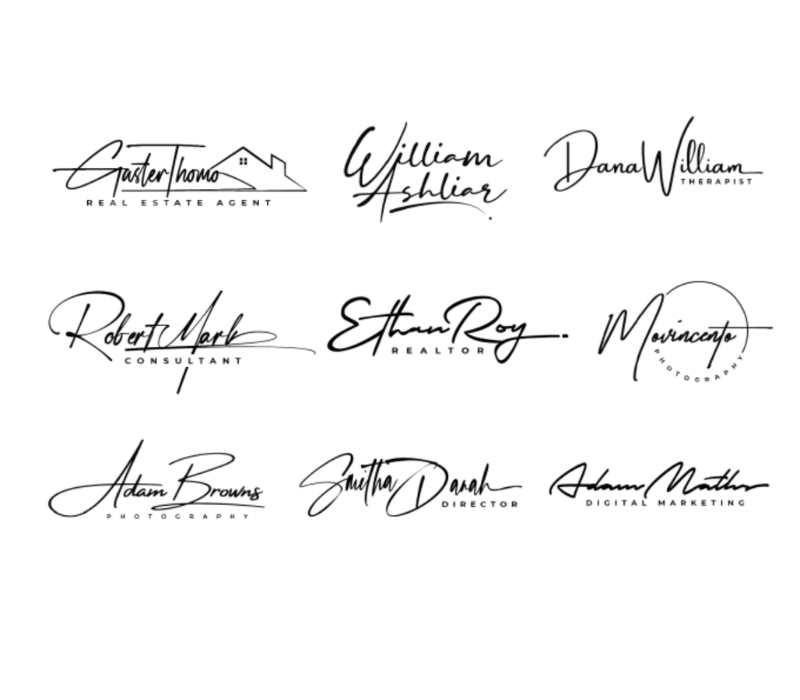 GasterThomo
REAL ESTATE AGENT
William
Ashliar
DanaWilliam
THERAPIST
Robert Mark
CONSULTANT
EthanRoy
REALTOR
Movincento
PHOTOGRAPHY
Adam Browns
PHOTOGRAPHY
Smitha Darah
DIRECTOR
Adam Maths
DIGITAL MARKETING